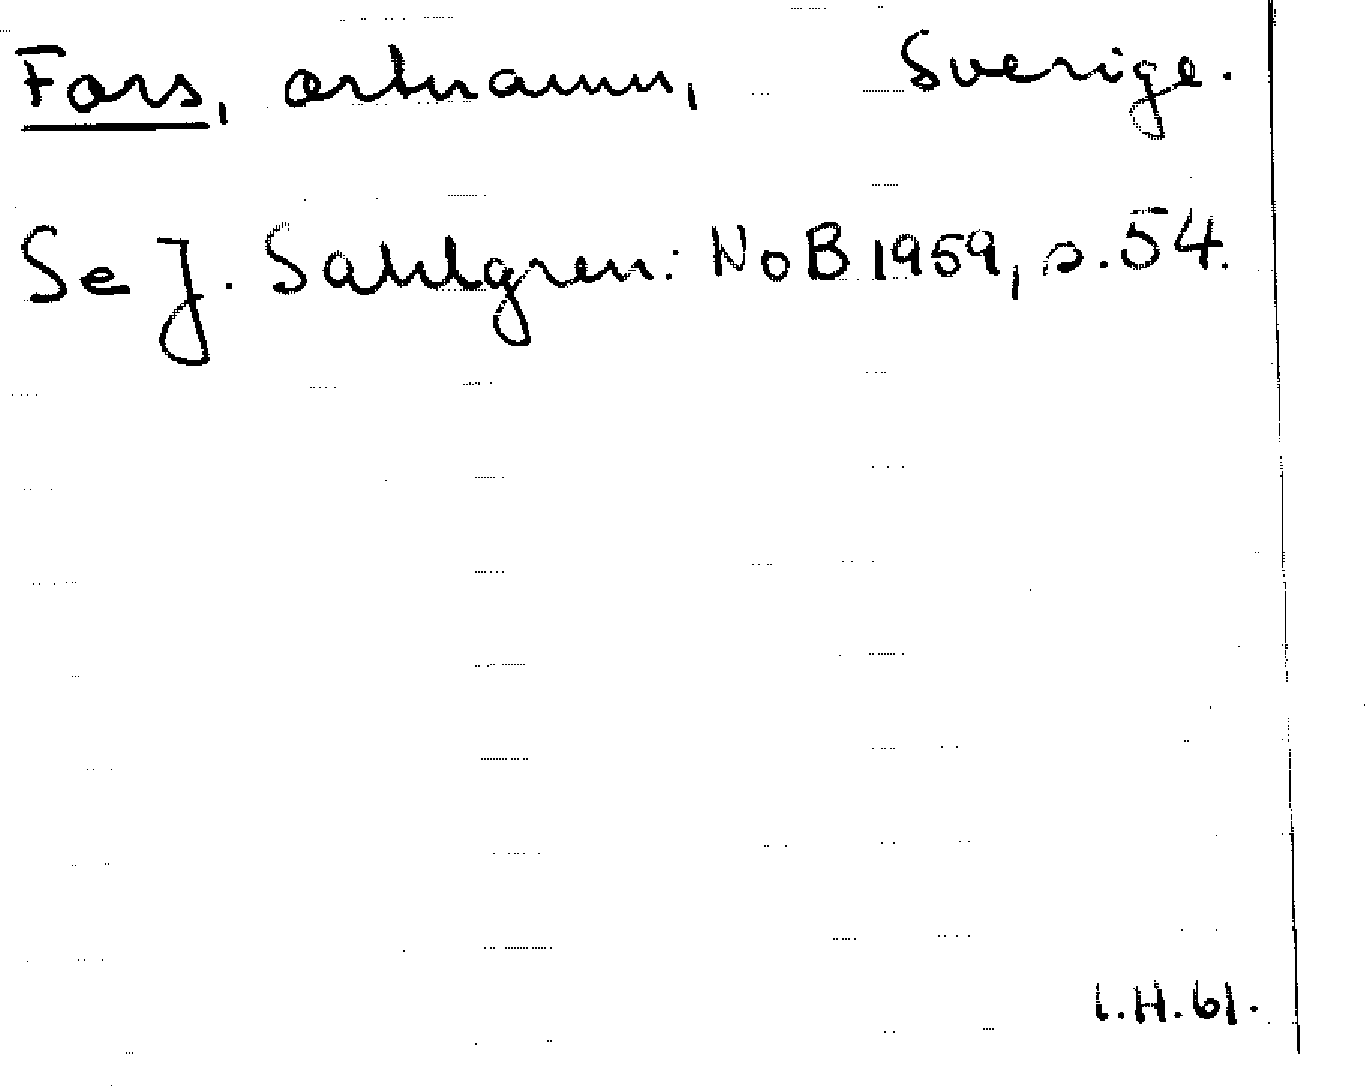 Fors, ortnamn, Sverige.
Se J. Sahlgren: NoB 1959, s. 54.
I.H.61.